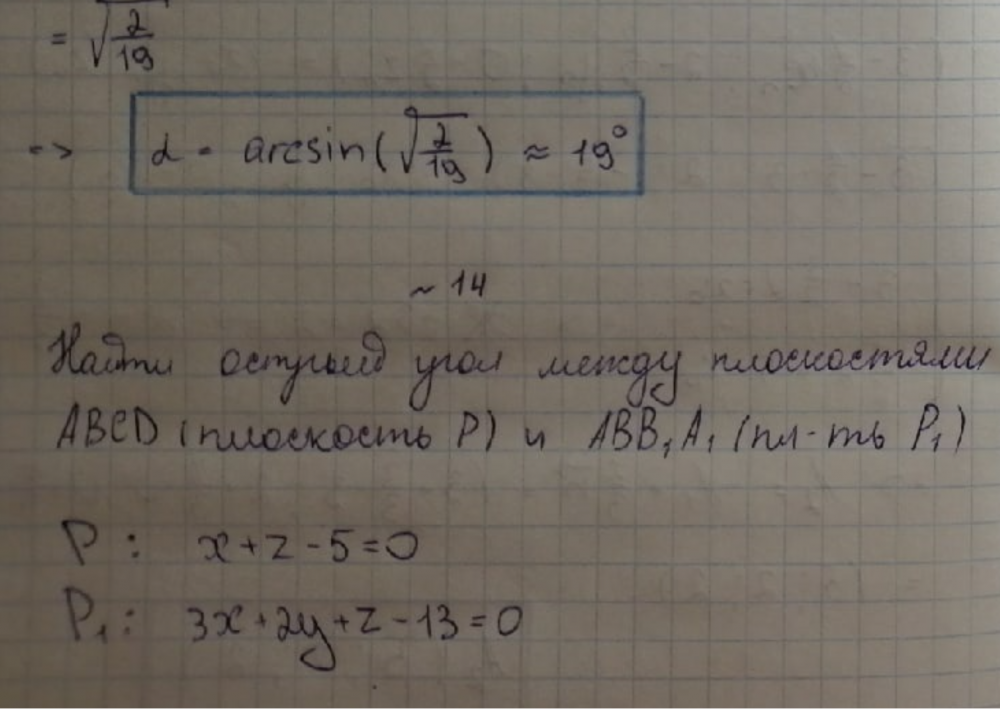 = √(2/19)
=> α = arcsin(√(2/19)) ≈ 19°
~ 14
Найти острый угол между плоскостями
ABCD (плоскость P) и ABB₁A₁ (пл-ть P₁)
P : x+z-5=0
P₁: 3x+2y+z-13=0